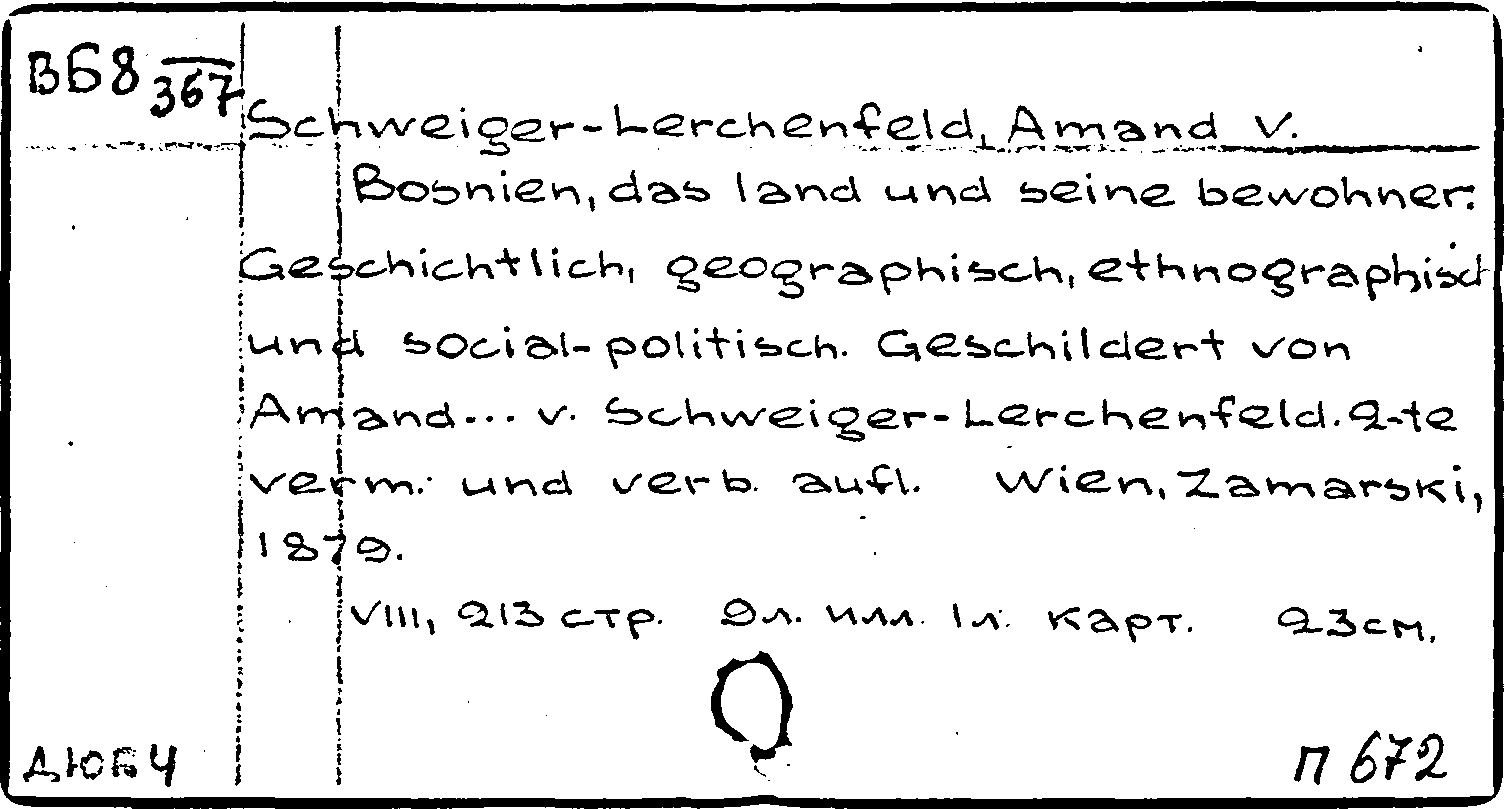 ВБ8 367
Schweiger-Lerchenfeld, Amand v.
Bosnien, das land und seine bewohner.
Geschichtlich, geographisch, ethnographisch
und social-politisch. Geschildert von
Amand... v. Schweiger-Lerchenfeld. 2-te
verm. und verb. aufl. Wien, Zamarski,
1879.
VIII, 213 стр. 9л. илл. 1л. карт. 23см.
П 672